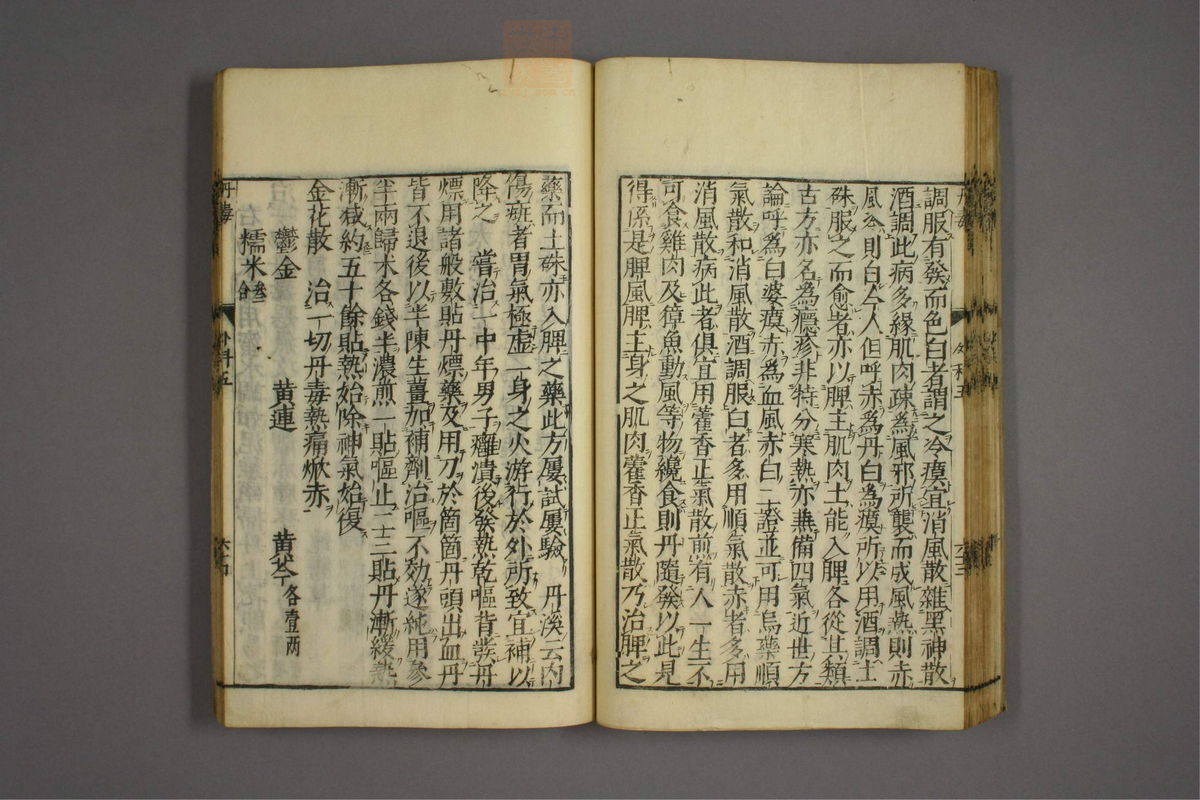 調服有發而色白者謂之冷瘼宜消風散雜黑神散
酒調此病多緣肌肉疎為風邪所襲而成風熱則赤
風冷則白今人但呼赤為丹白為瘼所以用酒調土
硃服之而愈者亦以脾主肌肉土能入脾各從其類
古方亦名為癮疹非特分寒熱亦兼備四氣近世方
論呼為白婆瘼赤為血風赤白二證並可用烏藥順
氣散和消風散酒調服白者多用順氣散赤者多用
消風散病此者俱宜用藿香正氣散煎有人一生不
可食雞肉及獐魚動風等物纔食則丹隨發以此是
得係是脾風脾主身之肌肉藿香正氣散乃治脾之
藥而土硃亦入脾之藥此方屢試屢驗 丹溪云內
傷斑者胃氣極虛一身之火游行於外所致宜補以
降之 嘗治一中年男子癰潰後發熱乾嘔背發丹
熛用諸般敷貼丹熛藥及用刀於箇箇丹頭出血丹
皆不退後以半陳生薑加補劑治嘔不効遂純用參
半兩歸朮各錢半濃煎一貼嘔止二三貼丹漸緩熱
漸減約五十餘貼熱始除神氣始復
金花散 治一切丹毒熱痛焮赤
鬱金 黄連 黄芩各壹两
糯米叁合
丹毒 六十四